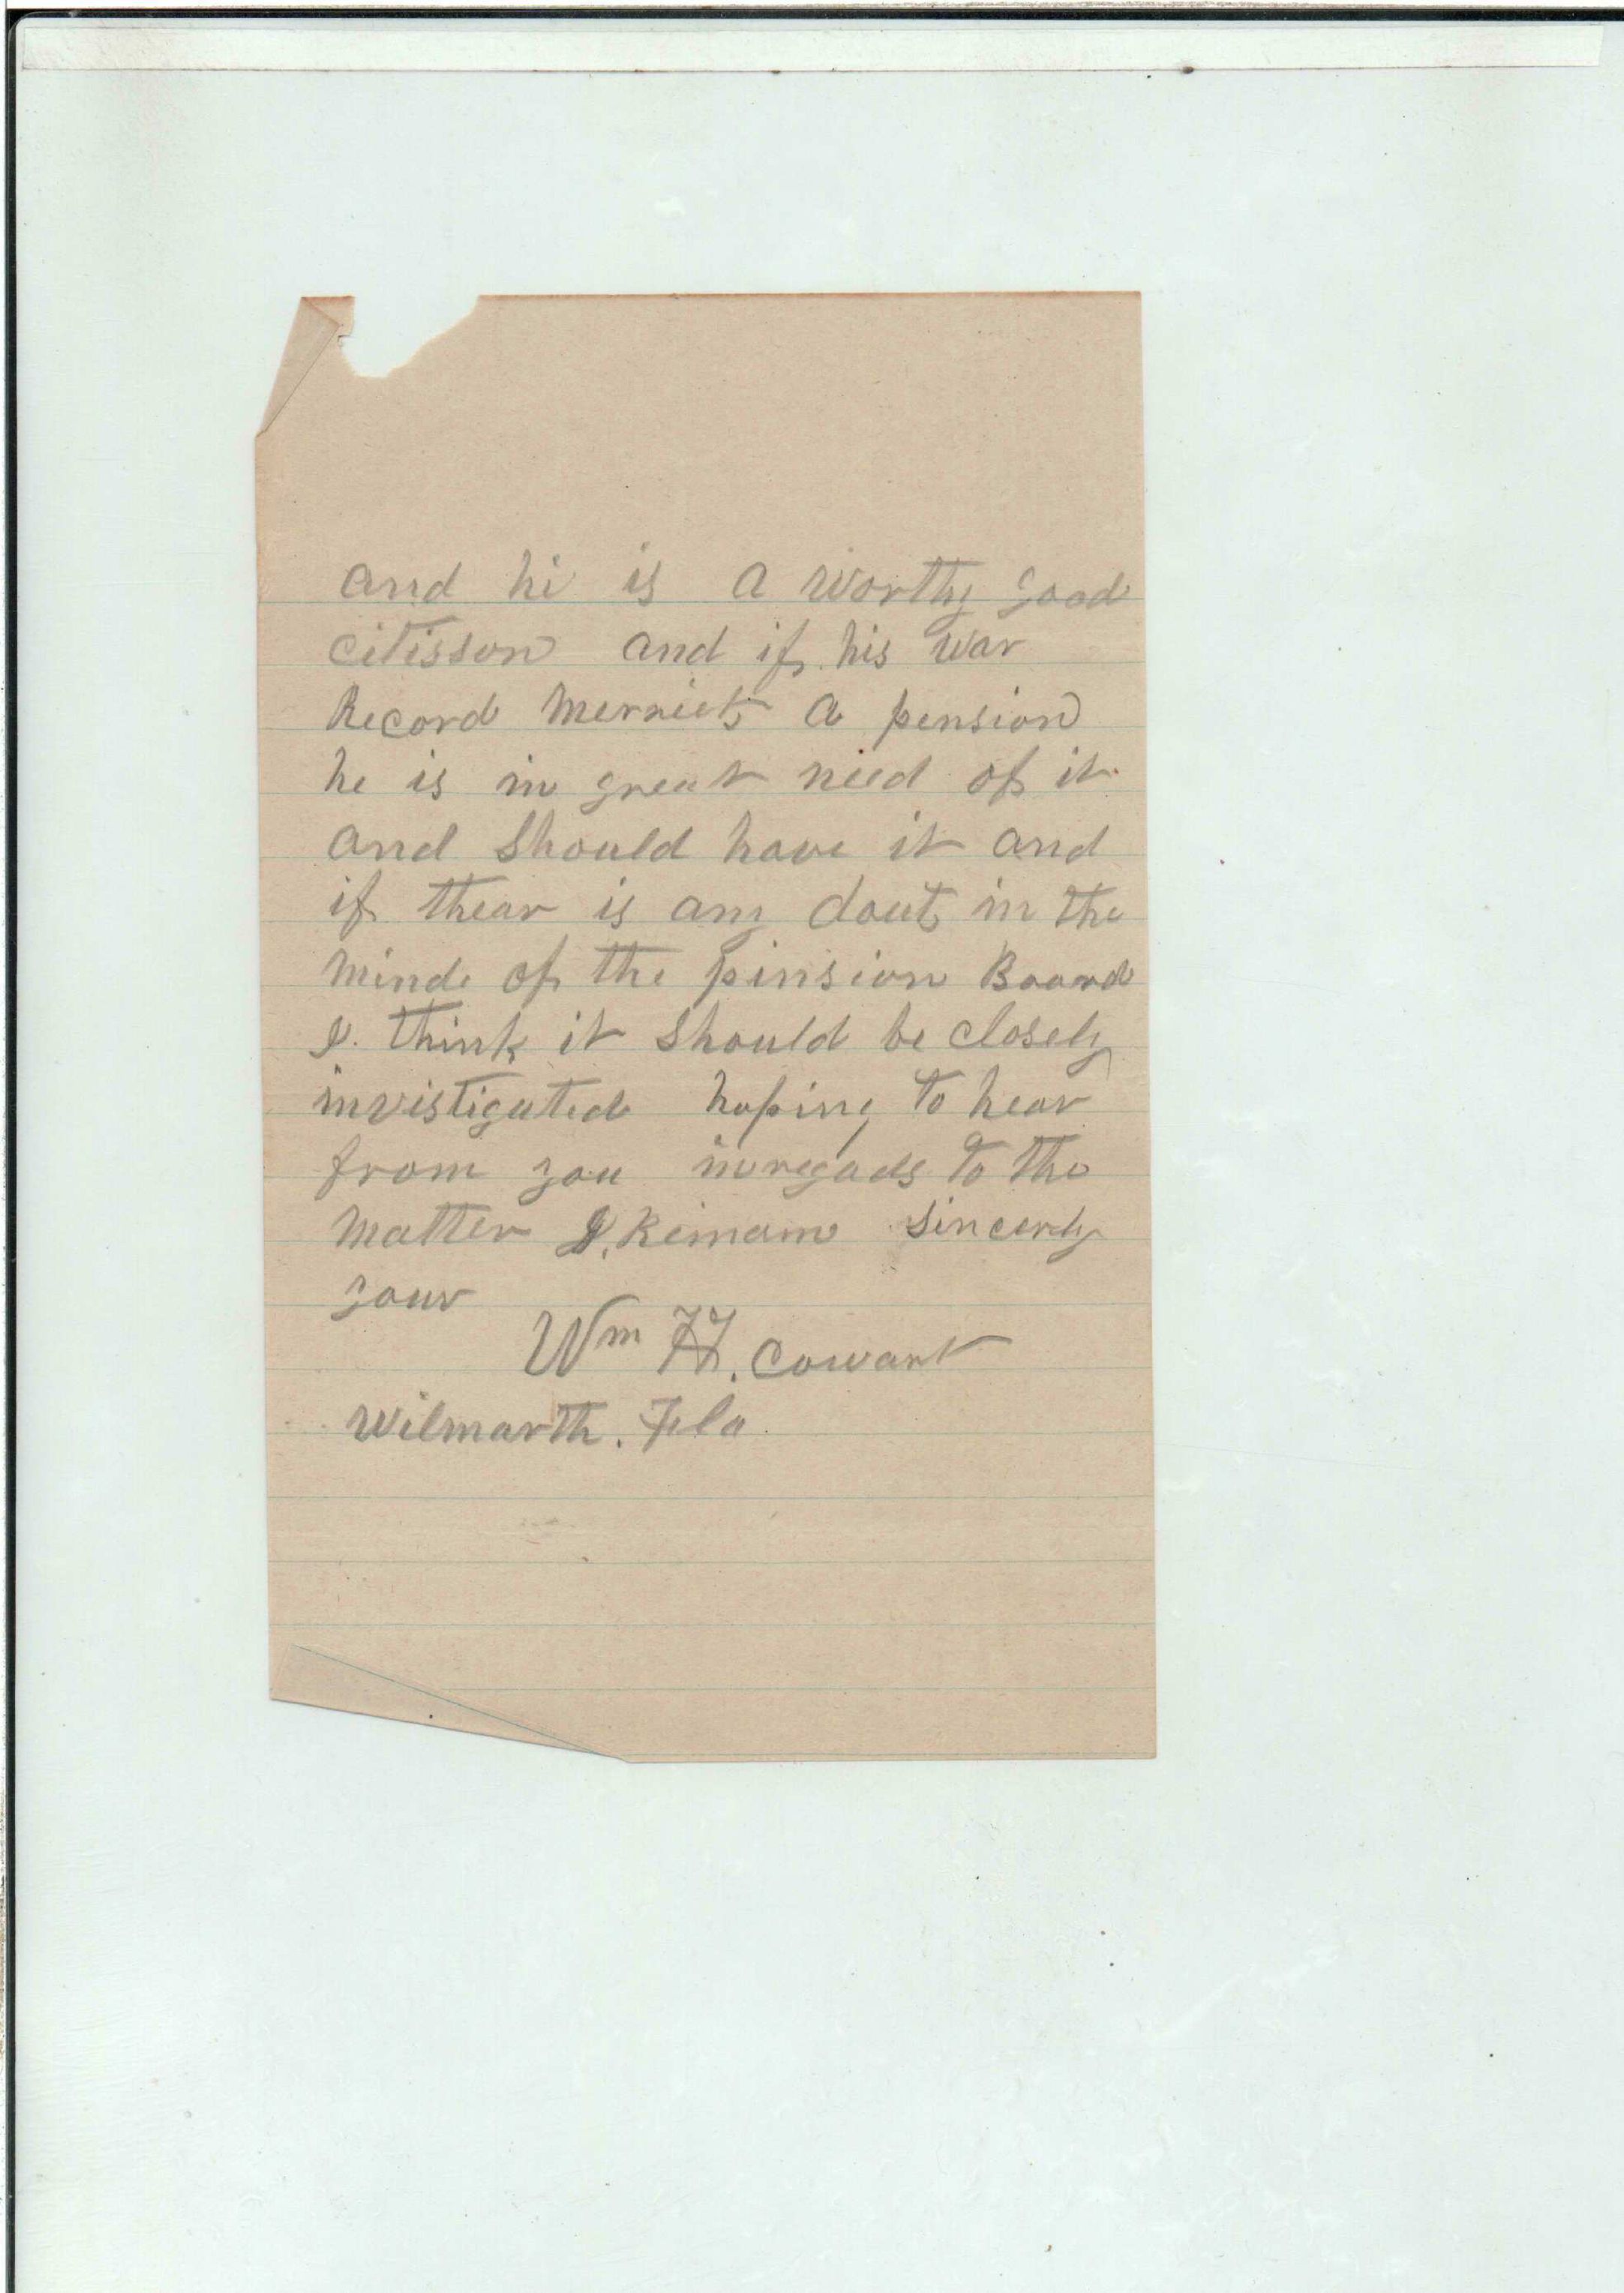 and hi is a worthy good
citisson and if his war
Record merriets a pension
he is in great need of it
and should have it and
if thear is any dout in the
mind of the pinsion Board
I. think it should be closely
invistigated hoping to hear
from you inregads to the
matter I. Remain sincerly
your
Wm H. Cowart
Wilmarth. Fla